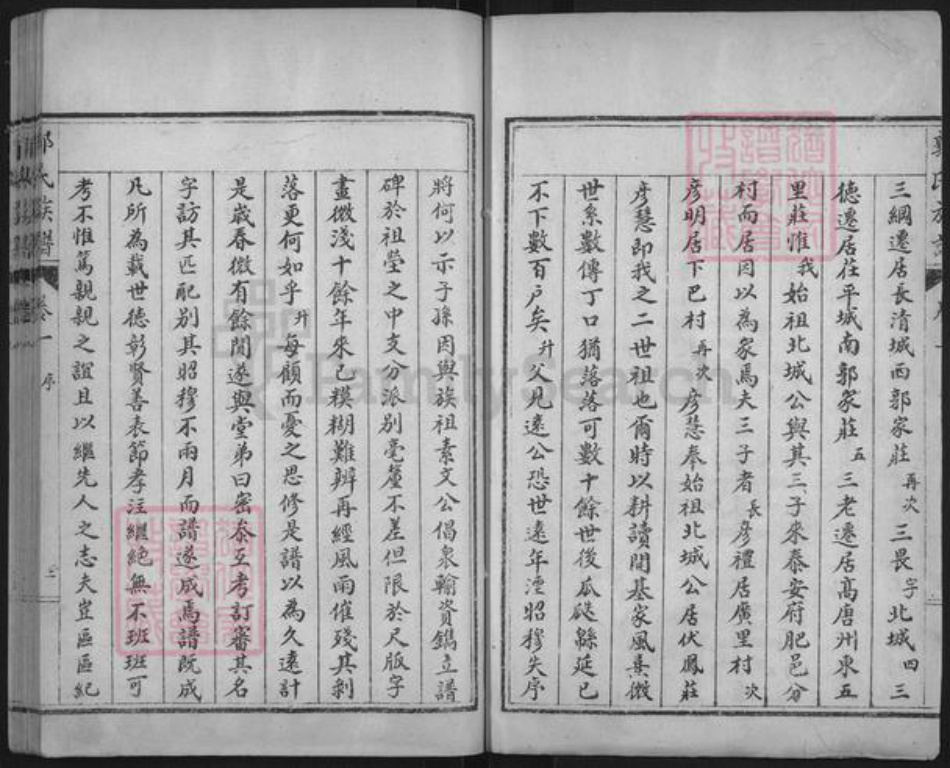 三綱遷居長清城西郭家莊再次三畏字北城四三
德遷居茌平城南郭家莊五三老遷居高唐州東五
里莊惟我始祖北城公與其三子來泰安府肥邑分
村而居因以為家焉夫三子者長彥禮居廣里村次
彥明居下巴村再次彥慧奉始祖北城公居伏鳳莊
彥慧即我之二世祖也爾時以耕讀開基家風熹微
世系數傳丁口猶落落可數十餘世後瓜瓞緜延已
不下數百戶矣升父見遠公恐世遠年湮昭穆失序
將何以示子孫因與族祖素文公倡衆輸資鐫立譜
碑於祖塋之中支分派別毫釐不差但限於尺版字
畫微淺十餘年來已模糊難辨再經風雨催殘其剝
落更何如乎升每顧而憂之思修是譜以為久遠計
是歲春微有餘閒遂與堂弟曰密叅互考訂審其名
字訪其匹配別其昭穆不兩月而譜遂成焉譜既成
凡所為載世德彰賢善表節孝注繼絕無不班班可
考不惟篤親親之誼且以繼先人之志夫豈區區紀
氏族譜
卷一
序
二
FamilySearch